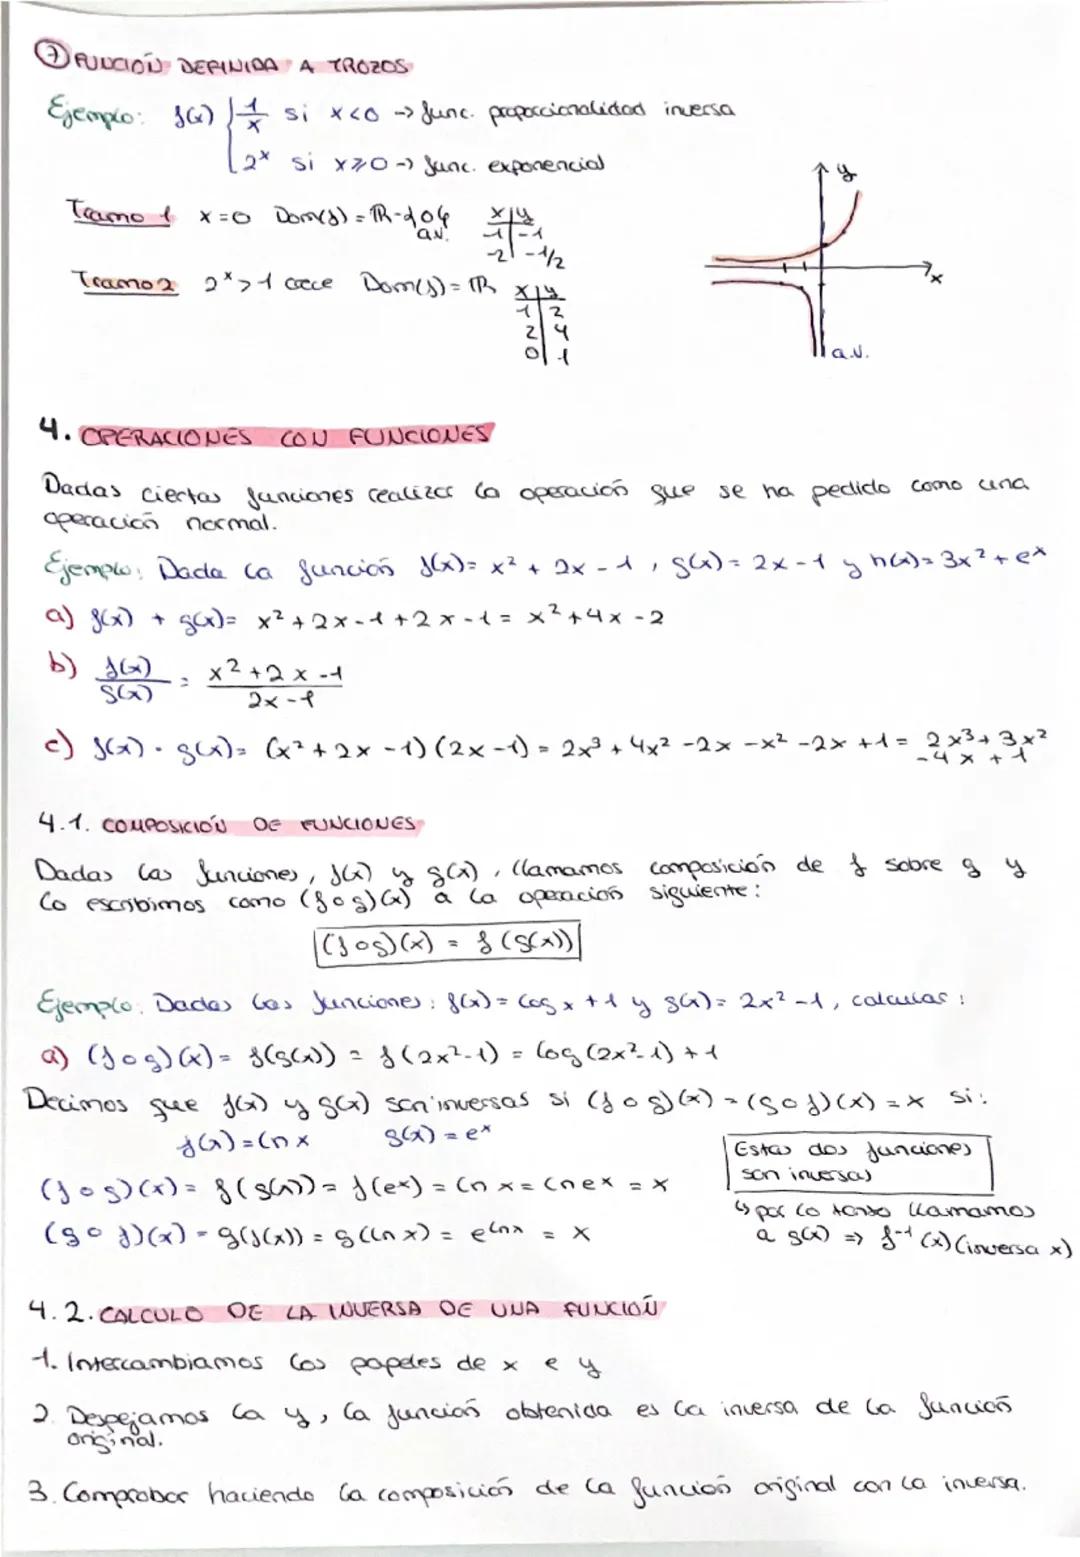 ⑦ FUNCIÓN DEFINIDA A TROZOS
Ejemplo: f(x) { 1/x si x<0 → func. proporcionalidad inversa
2ˣ si x≥0 → func. exponencial
Tramo 1 x=0 Dom(f) = ℝ-{0} a.v.
x | y
-1 | -1
-2 | -1/2
Tramo 2 2ˣ>1 crece Dom(f) = ℝ
x | y
1 | 2
2 | 4
0 | 1
y
x
a.v.
4. OPERACIONES CON FUNCIONES
Dadas ciertas funciones realizar la operación que se ha pedido como una
operación normal.
Ejemplo: Dada la función f(x)= x² + 2x - 1, g(x)= 2x - 1 y h(x)= 3x² + eˣ
a) f(x) + g(x)= x² + 2x - 1 + 2x - 1 = x² + 4x - 2
b) f(x)/g(x) = (x² + 2x - 1)/(2x - 1)
c) f(x) · g(x)= (x² + 2x - 1)(2x - 1) = 2x³ + 4x² - 2x - x² - 2x + 1 = 2x³ + 3x²
- 4x + 1
4.1. COMPOSICIÓN DE FUNCIONES
Dadas las funciones, f(x) y g(x), llamamos composición de f sobre g y
lo escribimos como (f∘g)(x) a la operación siguiente:
(f∘g)(x) = f(g(x))
Ejemplo: Dadas las funciones: f(x)= log x + 1 y g(x)= 2x² - 1, calcular:
a) (f∘g)(x)= f(g(x)) = f(2x²-1) = log(2x²-1) + 1
Decimos que f(x) y g(x) son inversas si (f∘g)(x) = (g∘f)(x) = x si:
f(x) = ln x g(x) = eˣ
(f∘g)(x) = f(g(x)) = f(eˣ) = ln x = ln eˣ = x
(g∘f)(x) = g(f(x)) = g(ln x) = e^(ln x) = x
Estas dos funciones
son inversas
↳ por lo tanto llamamos
a g(x) ⇒ f⁻¹(x) (inversa x)
4.2. CALCULO DE LA INVERSA DE UNA FUNCIÓN
1. Intercambiamos los papeles de x e y
2. Despejamos la y, la función obtenida es la inversa de la función
original.
3. Comprobar haciendo la composición de la función original con la inversa.